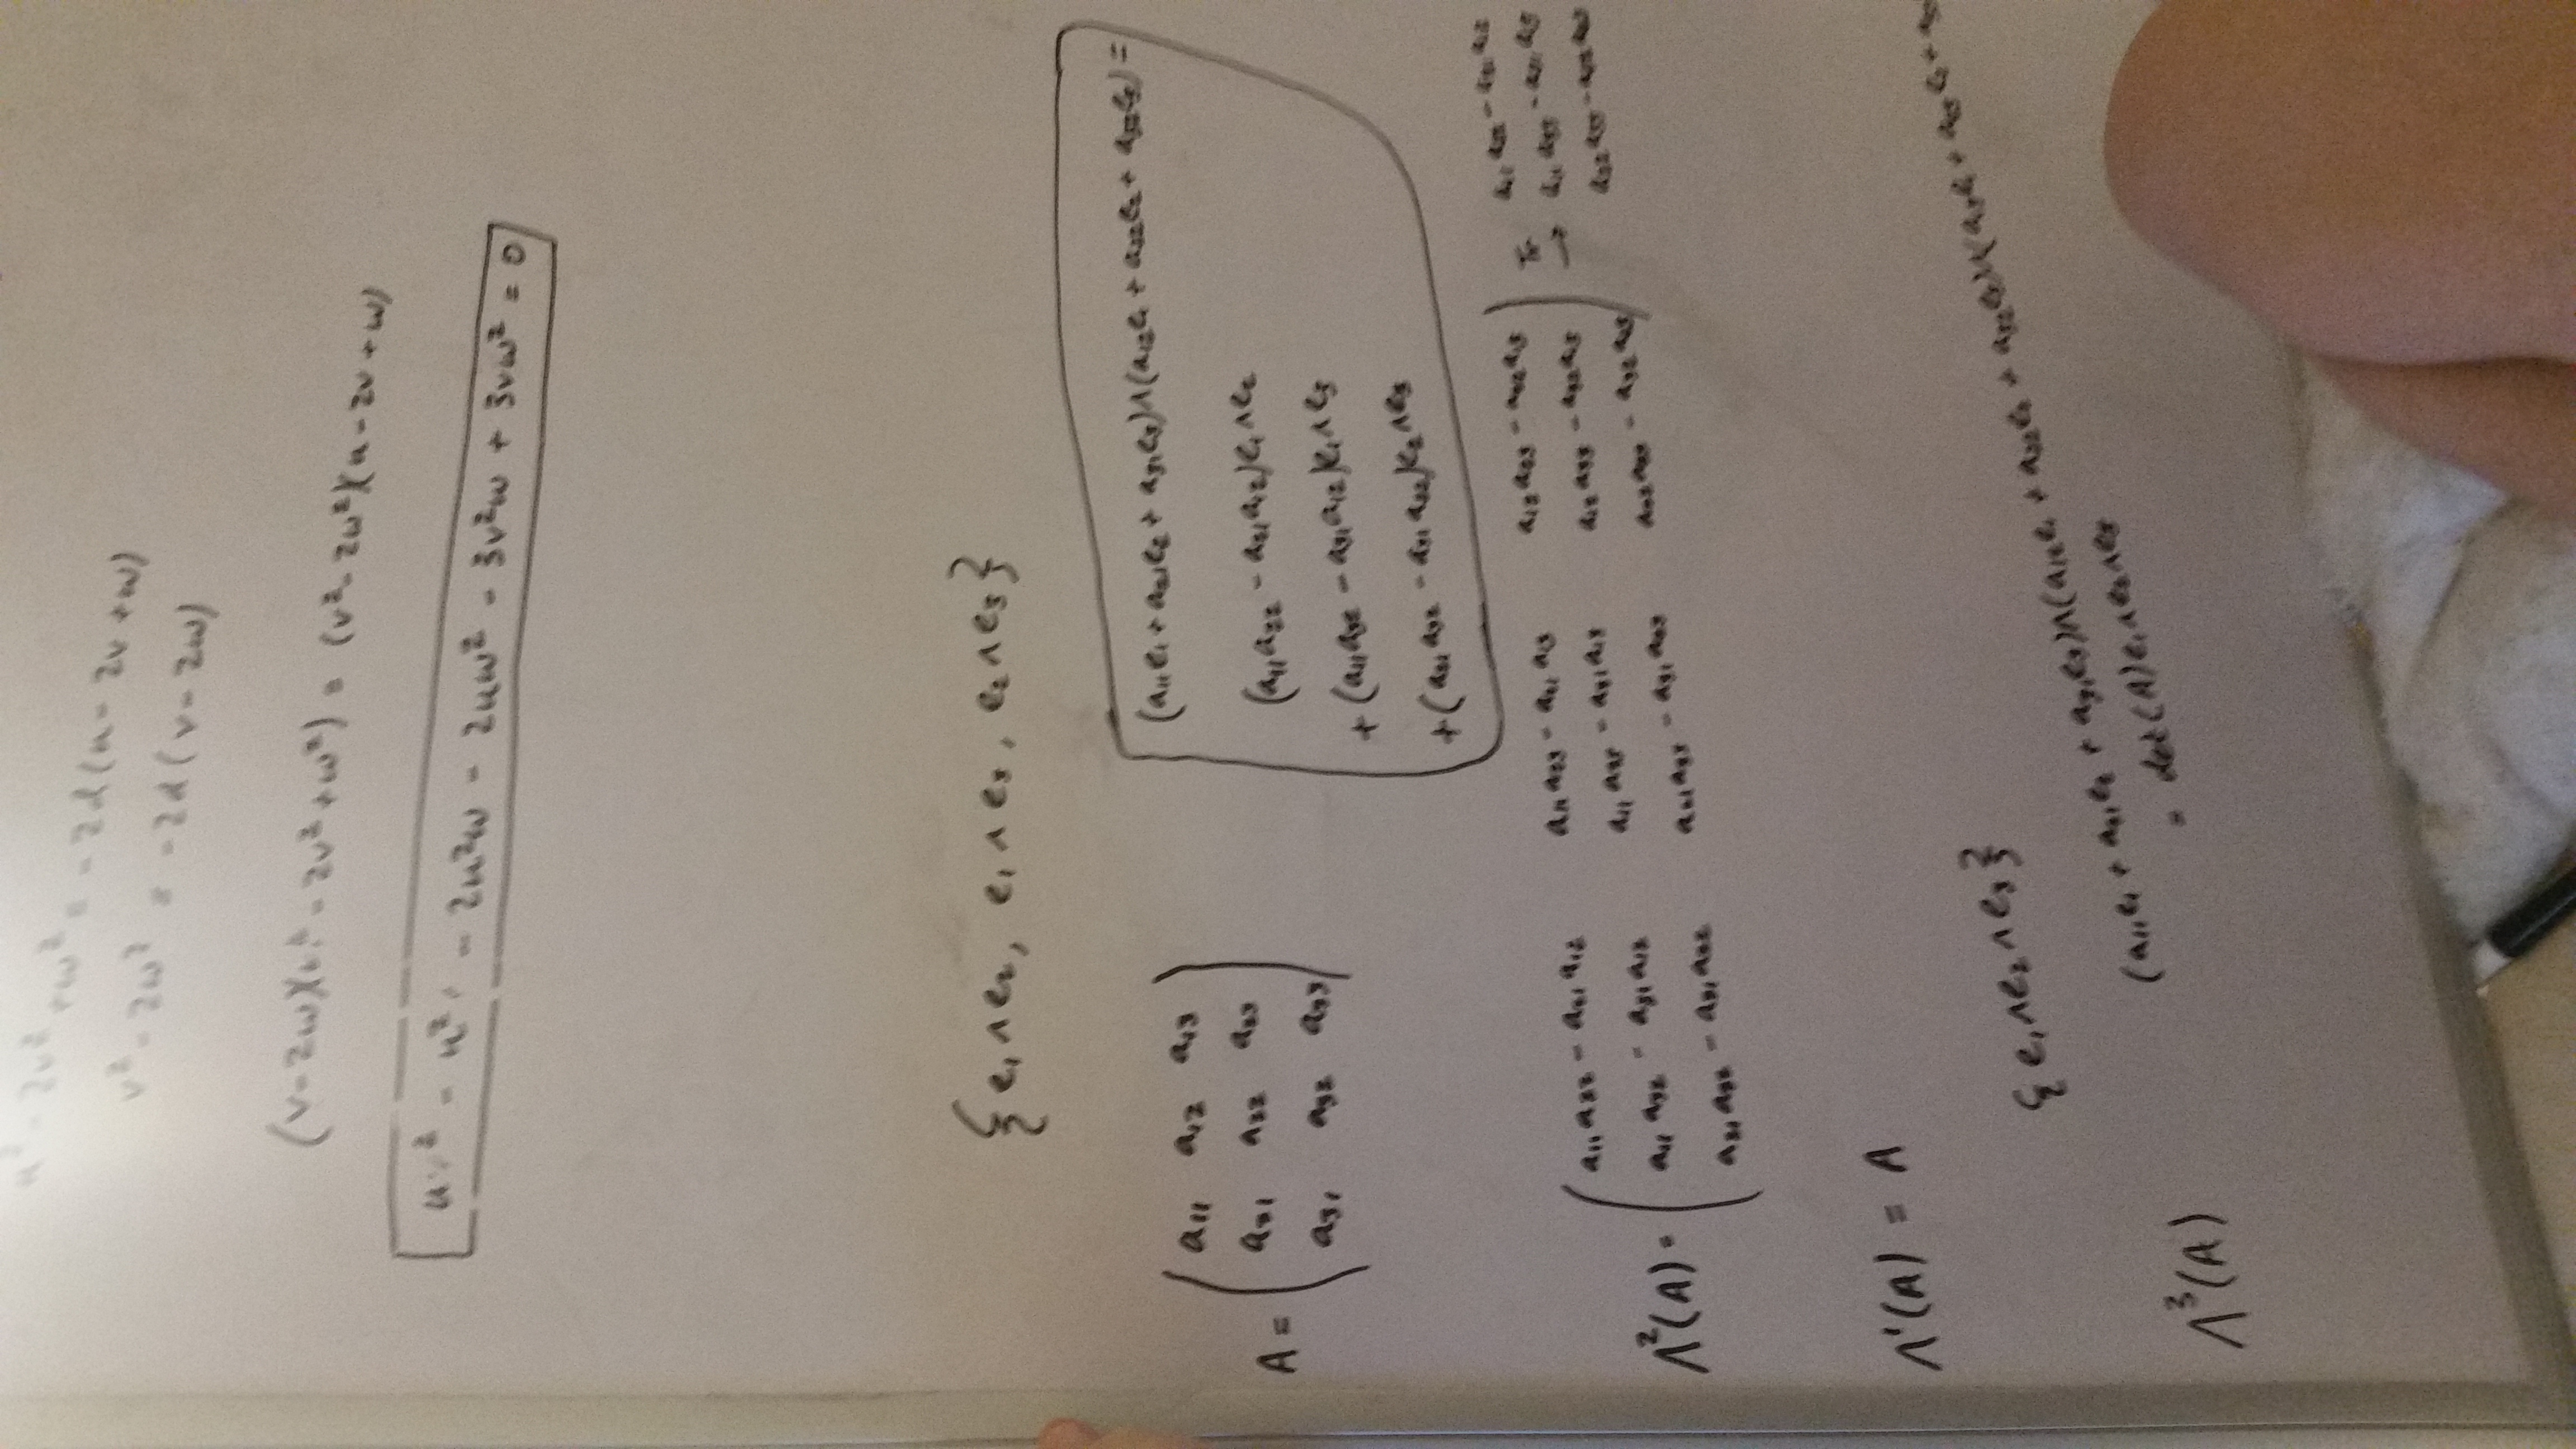 u² - 2v² + w² = -2d(u - 2v + w)
v² - 2w² = -2d(v - 2w)
(v - 2w)(u² - 2v² + w²) = (v² - 2w²)(u - 2v + w)
- u² - 2u²w - 2uw² - 3v²w + 3vw² = 0
{e₁∧e₂, e₁∧e₃, e₂∧e₃}
A = ( a₁₁ a₁₂ a₁₃
a₂₁ a₂₂ a₂₃
a₃₁ a₃₂ a₃₃ )
(a₁₁e₁ + a₂₁e₂ + a₃₁e₃)∧(a₁₂e₁ + a₂₂e₂ + a₃₂e₃) =
(a₁₁a₂₂ - a₂₁a₁₂)e₁∧e₂
+ (a₁₁a₃₂ - a₃₁a₁₂)e₁∧e₃
+ (a₂₁a₃₂ - a₃₁a₂₂)e₂∧e₃
Λ²(A) = ( a₁₁a₂₂ - a₂₁a₁₂ a₁₁a₂₃ - a₂₁a₁₃ a₁₂a₂₃ - a₂₂a₁₃
a₁₁a₃₂ - a₃₁a₁₂ a₁₁a₃₃ - a₃₁a₁₃ a₁₂a₃₃ - a₃₂a₁₃
a₂₁a₃₂ - a₃₁a₂₂ a₂₁a₃₃ - a₃₁a₂₃ a₂₂a₃₃ - a₃₂a₂₃ )
Tr → a₁₁a₂₂ - a₂₁a₁₂
a₁₁a₃₃ - a₃₁a₁₃
a₂₂a₃₃ - a₃₂a₂₃
Λ¹(A) = A
{e₁∧e₂∧e₃}
Λ³(A) (a₁₁e₁ + a₂₁e₂ + a₃₁e₃)∧(a₁₂e₁ + a₂₂e₂ + a₃₂e₃)∧(a₁₃e₁ + a₂₃e₂ +
= det(A)e₁∧e₂∧e₃